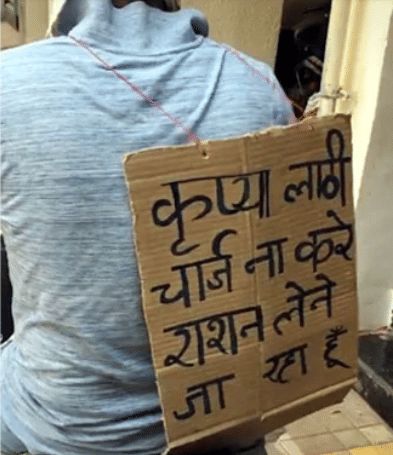 कृप्या लाठी
चार्ज ना करे
राशन लेने
जा रहा हूँ